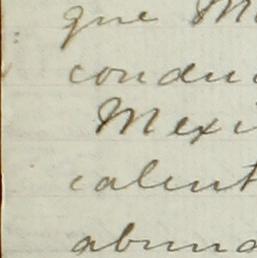 que M
condu
Mexi
calent
abund